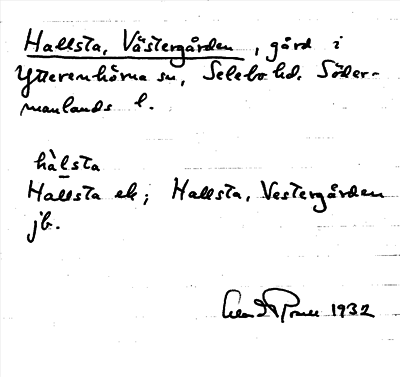 Hallsta, Västergården, gård i
Ytterenhörna sn, Selebo hd, Söder-
manlands l.
hàlsta
Hallsta ek; Hallsta, Vestergården
jb.
1932